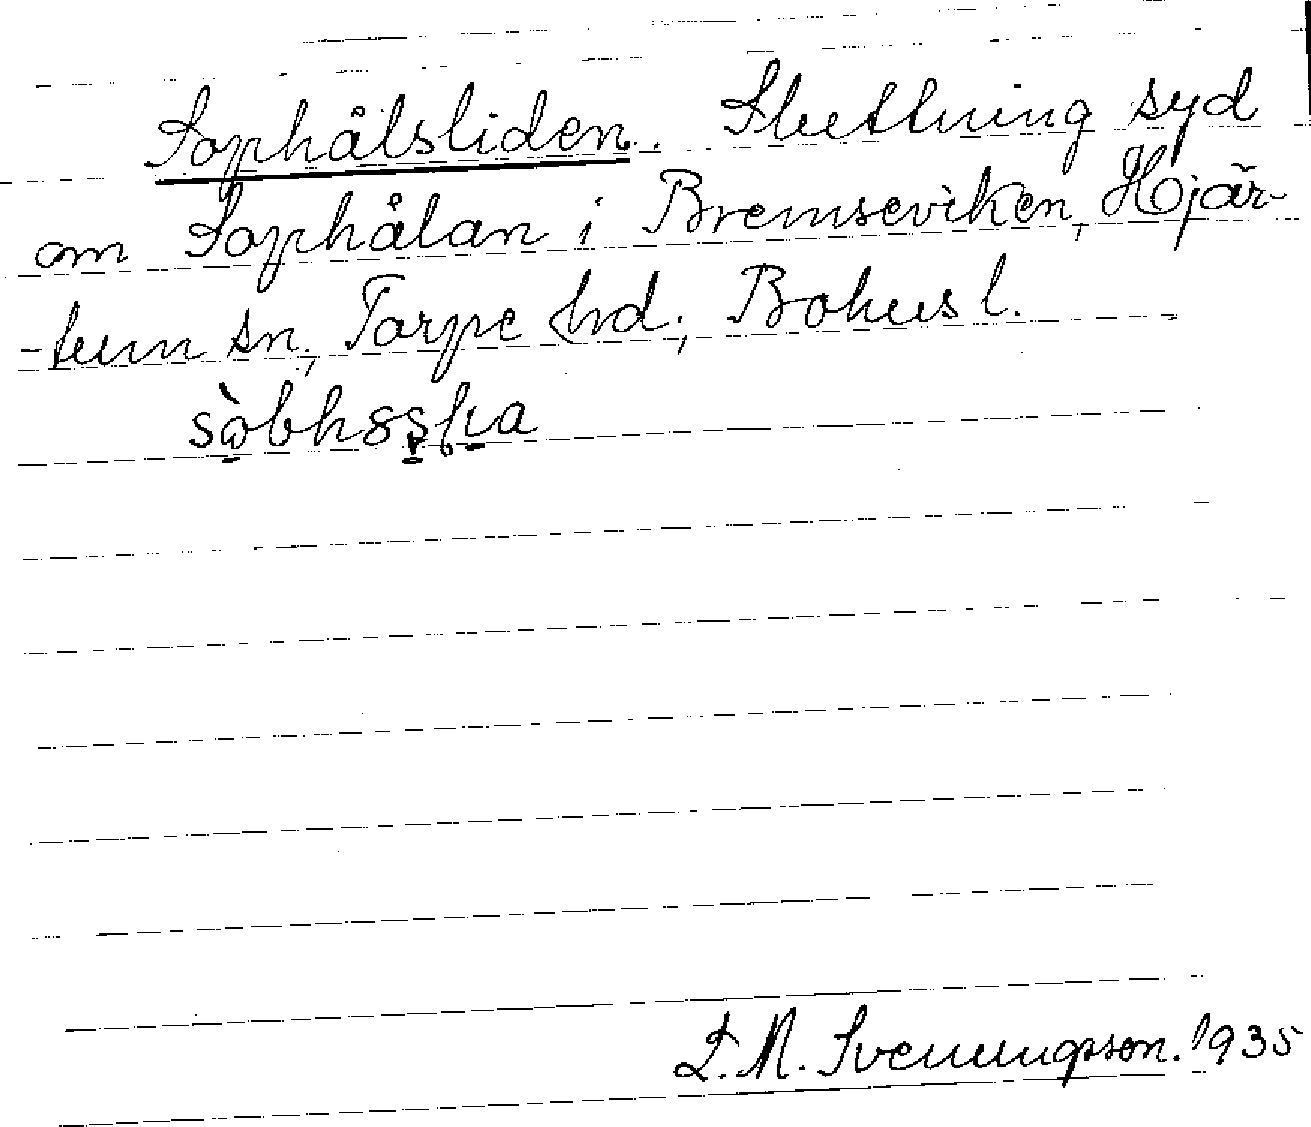 Sophålsliden. Sluttning syd
om Sophålan i Bremseviken, Hjär-
-tum sn; Torpe hd; Bohusl.
L. M. Svenungsson. 1935